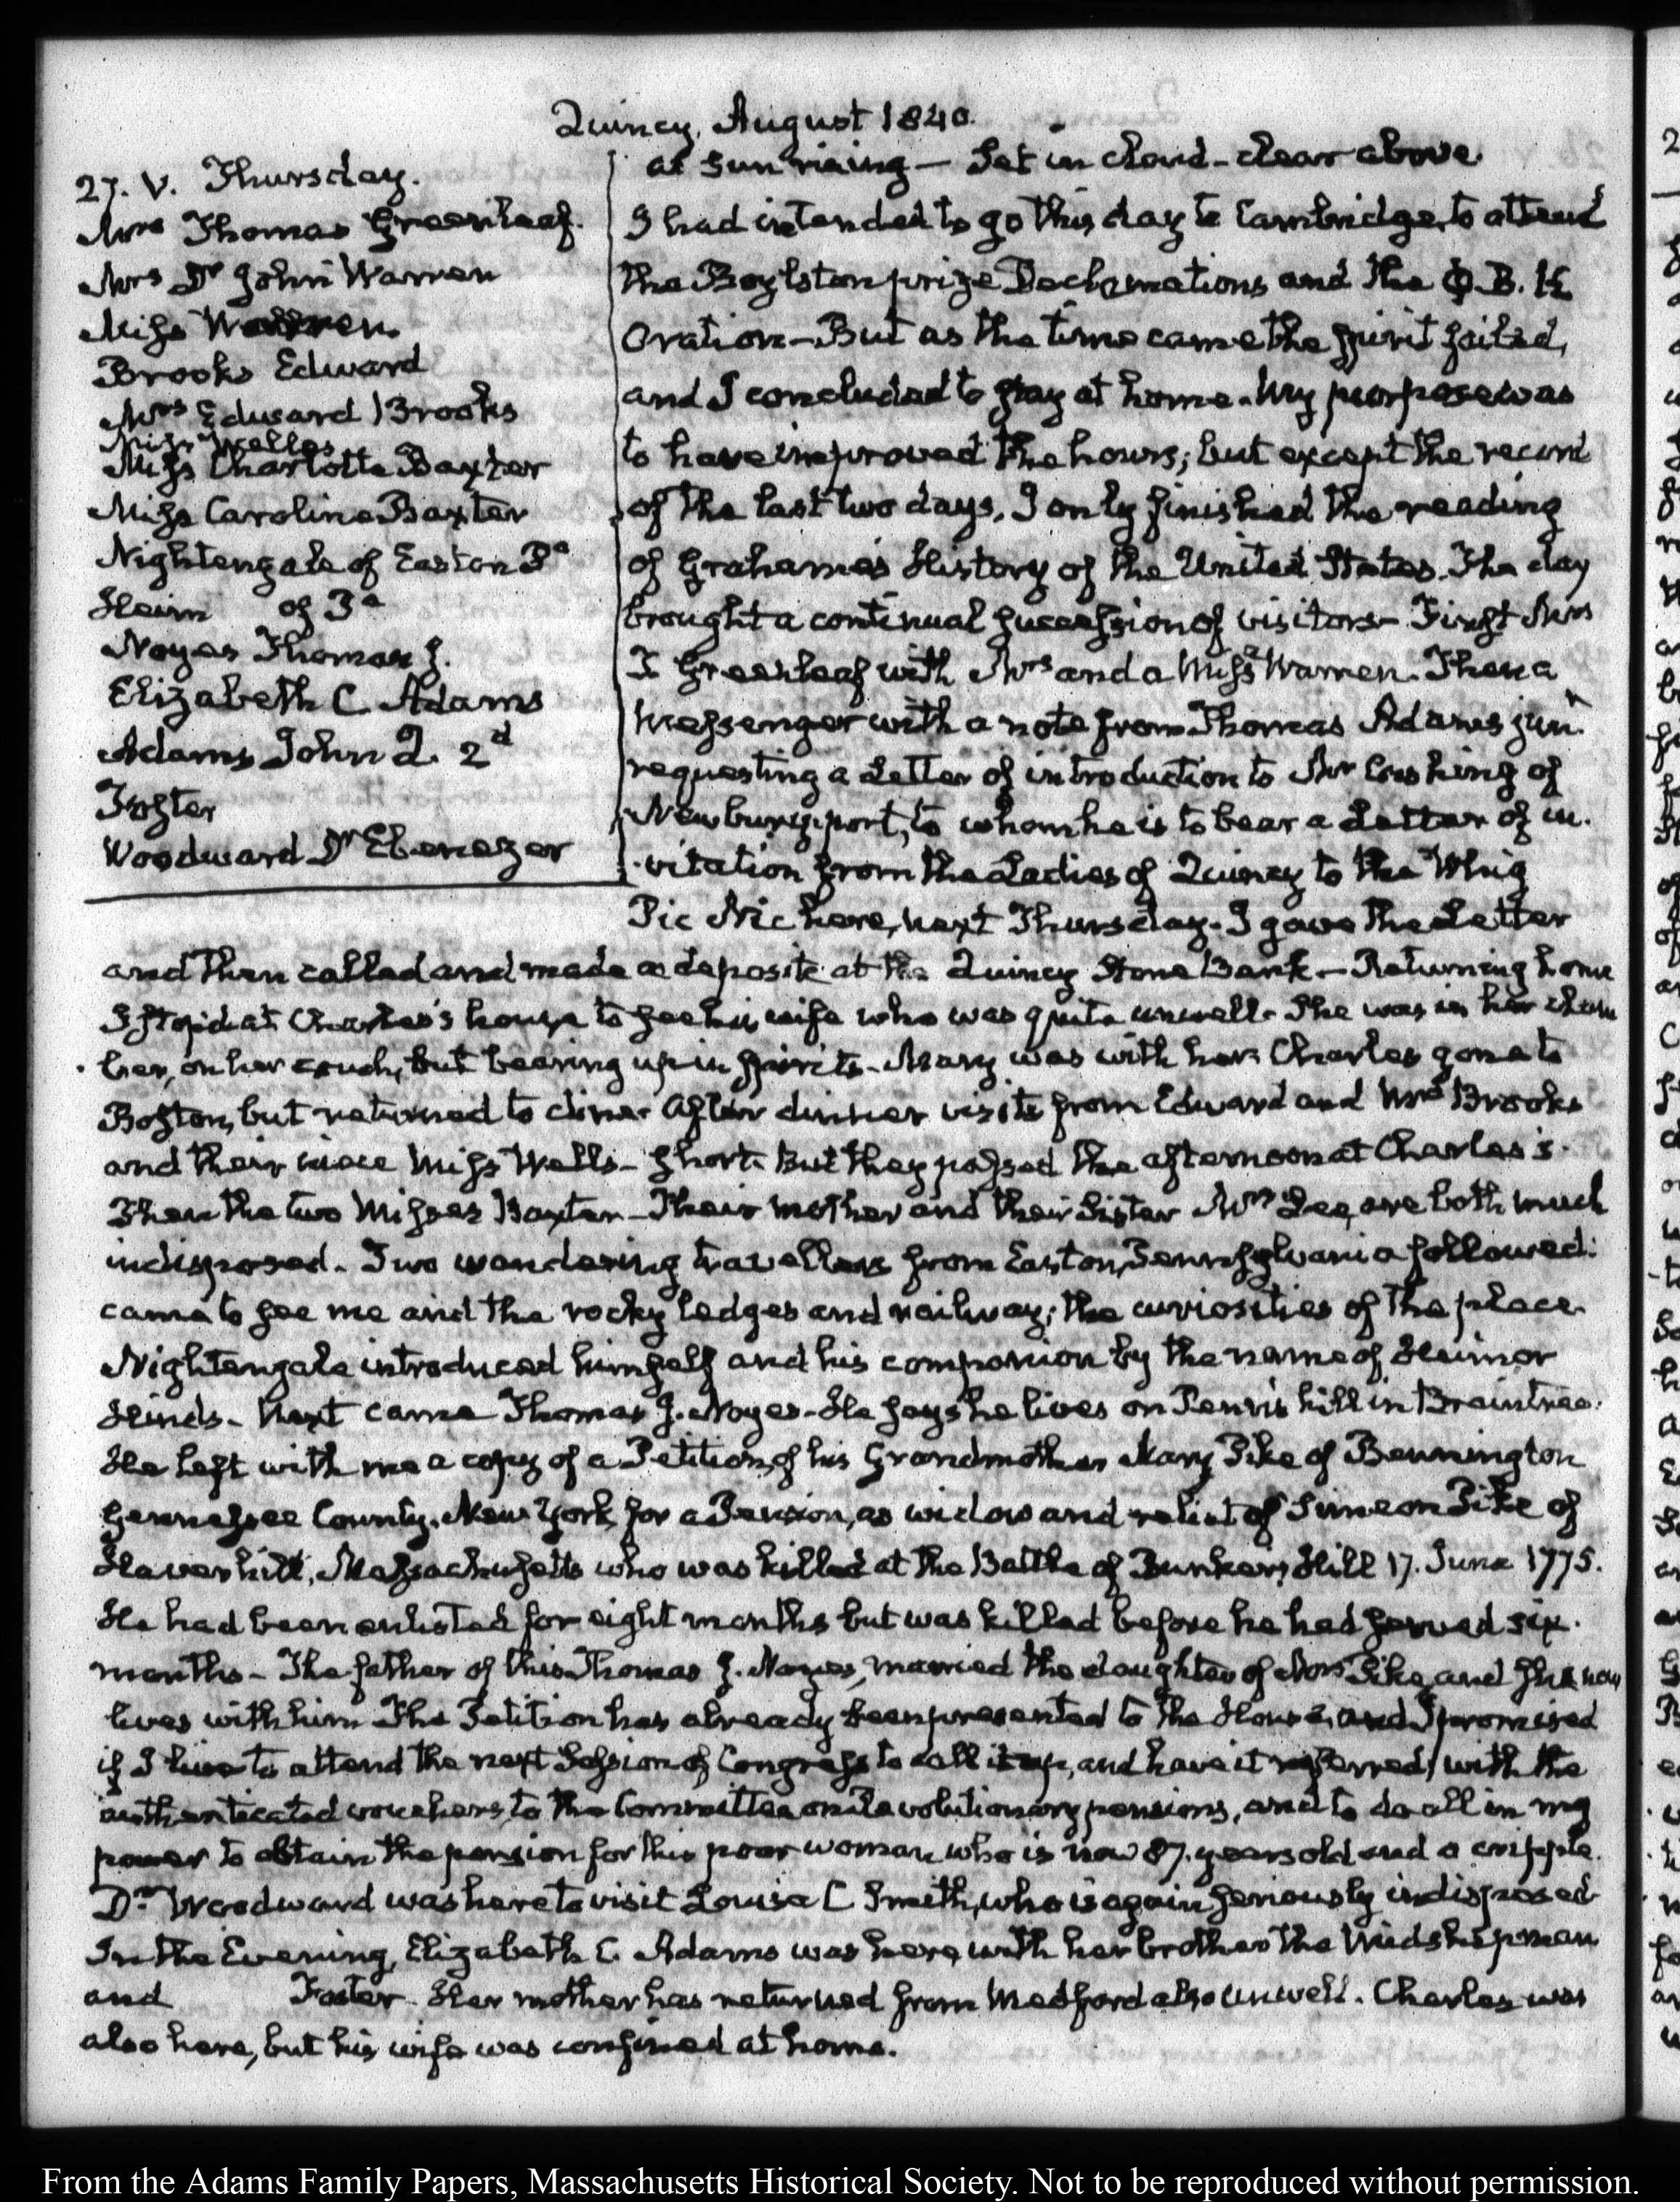 Quincy, August 1840.
27. V. Thursday.
Mrs Thomas Greenleaf.
Mrs Dr John Warren
Miss Warren.
Brooks Edward
Mrs Edward Brooks
Miss Welles
Miss Charlotte Baxter
Miss Caroline Baxter
Nightengale of Easton Pa
Heim of Pa
Noyes Thomas J.
Elizabeth C. Adams
Adams John Q. 2d
Foster
Woodward Dr Ebenezer
at Sun rising — Set in cloud - clear above
I had intended to go this day to Cambridge, to attend
the Boylston prize Declamations and the Φ.B.K.
Oration — But as the time came the spirit failed,
and I concluded to stay at home. My purpose was
to have improved the hours; but except the record
of the last two days, I only finished the reading
of Grahame's History of the United States. The day
brought a continual succession of visitors — First Mrs
T Greenleaf with Mrs and a Miss Warren. Then a
Messenger with a note from Thomas Adams junr
requesting a Letter of introduction to Mr Cushing of
Newburyport, to whom he is to bear a Letter of in-
-vitation from the Ladies of Quincy to the Whig
Pic Nic here, next Thursday. I gave the Letter
and then called and made a deposite at the Quincy Stone Bank — Returning home
I stop'd at Charles's house to see his wife who was quite unwell. She was in her cham
-ber, on her couch, but bearing up in spirits. Mary was with her. Charles gone to
Boston, but returned to dine. After dinner visits from Edward and Mrs Brooks
and their niece Miss Wells — short. But they passed the afternoon at Charles's.
Then the two Misses Baxter — Their mother and their Sister Mrs Lee, are both much
indisposed. Two wandering travellers from Easton, Pennsylvania followed:
came to see me and the rocky ledges and railway; the curiosities of the place.
Nightengale introduced himself and his companion by the name of Heim or
Hinds. Next came Thomas J. Noyes. He says he lives on Penn's hill in Braintree.
He left with me a copy of a Petition, of his Grandmother Mary Pike of Bennington
Gennessee County, New York, for a Pension, as widow and relict of Simeon Pike of
Haverhill, Massachusetts who was killed at the Battle of Bunkers Hill 17. June 1775.
He had been enlisted for eight months but was killed before he had served six
months — The father of this Thomas J. Noyes, married the daughter of Mrs Pike, and she now
lives with him. The Petition has already been presented to the House, and I promised
if I live to attend the next Session of Congress to call it up, and have it referred, with the
authenticated vouchers, to the Committee on Revolutionary pensions, and to do all in my
power to obtain the pension for this poor woman who is now 87. years old and a cripple.
Dr Woodward was here to visit Louisa C Smith, who is again seriously indisposed
In the Evening, Elizabeth C. Adams was here, with her brother the Midshipman
and Foster. Her mother has returned from Medford also unwell. Charles was
also here, but his wife was confined at home.
From the Adams Family Papers, Massachusetts Historical Society. Not to be reproduced without permission.